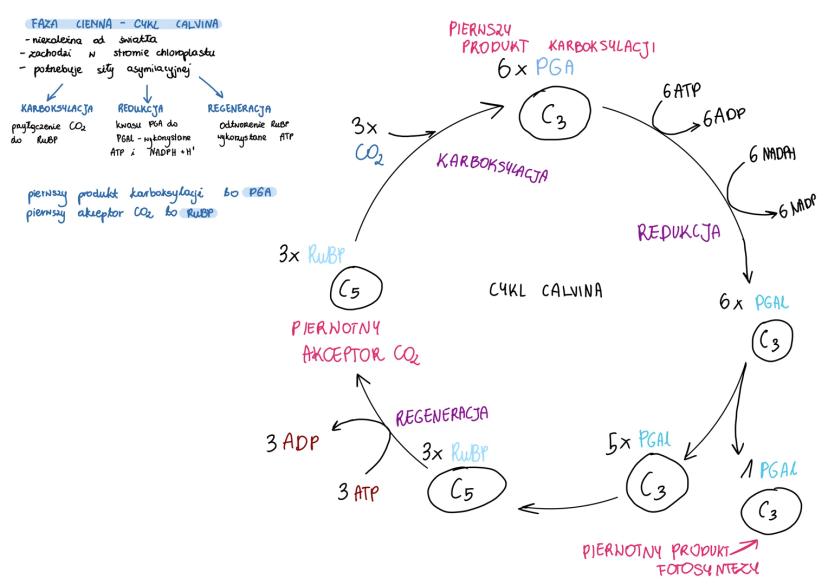 FAZA CIEMNA - CYKL CALVINA
- niezależna od światła
- zachodzi w stromie chloroplastu
- potrzebuje siły asymilacyjnej
KARBOKSYLACJA
przyłączenie CO2
do RuBP
REDUKCJA
kwasu PGA do
PGAL - wykorzystane
ATP i NADPH + H+
REGENERACJA
odtworzenie RuBP
wykorzystane ATP
pierwszy produkt karboksylacji to PGA
pierwszy akceptor CO2 to RuBP
PIERWSZY
PRODUKT KARBOKSYLACJI
6x PGA
C3
6 ATP
6 ADP
6 NADPH
6 NADP
3x
CO2
KARBOKSYLACJA
REDUKCJA
3x RuBP
C5
CYKL CALVINA
6x PGAL
C3
PIERWOTNY
AKCEPTOR CO2
REGENERACJA
3 ADP
3 ATP
3x RuBP
C5
5x PGAL
C3
1 PGAL
C3
PIERWOTNY PRODUKT
FOTOSYNTEZY